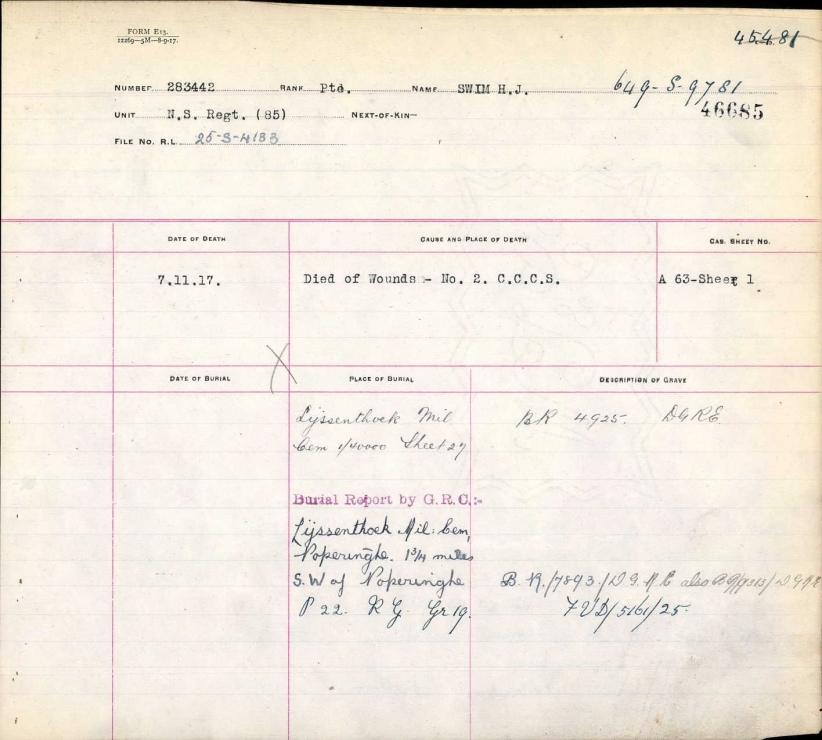 FORM E13.
12269—5M—8-9-17.
45481
NUMBER 283442 RANK Pte. NAME SWIM H.J. 649-S-9781
UNIT N.S. Regt. (85) NEXT-OF-KIN— 46685
FILE NO. R.L. 25-S-4133
DATE OF DEATH CAUSE AND PLACE OF DEATH CAS. SHEET NO.
7.11.17. Died of Wounds - No. 2. C.C.C.S. A 63-Sheet 1
DATE OF BURIAL PLACE OF BURIAL DESCRIPTION OF GRAVE
Lijssenthoek Mil BR 4925. DGRE
Cem 1/40000 Sheet 27
Burial Report by G.R.C.:-
Lijssenthoek Mil: Cem,
Poperinghe. 1 3/4 miles
S.W of Poperinghe B.R./7893/D.G.R.E also
P 22. R G. Gr 19. 7VD/5161/25.